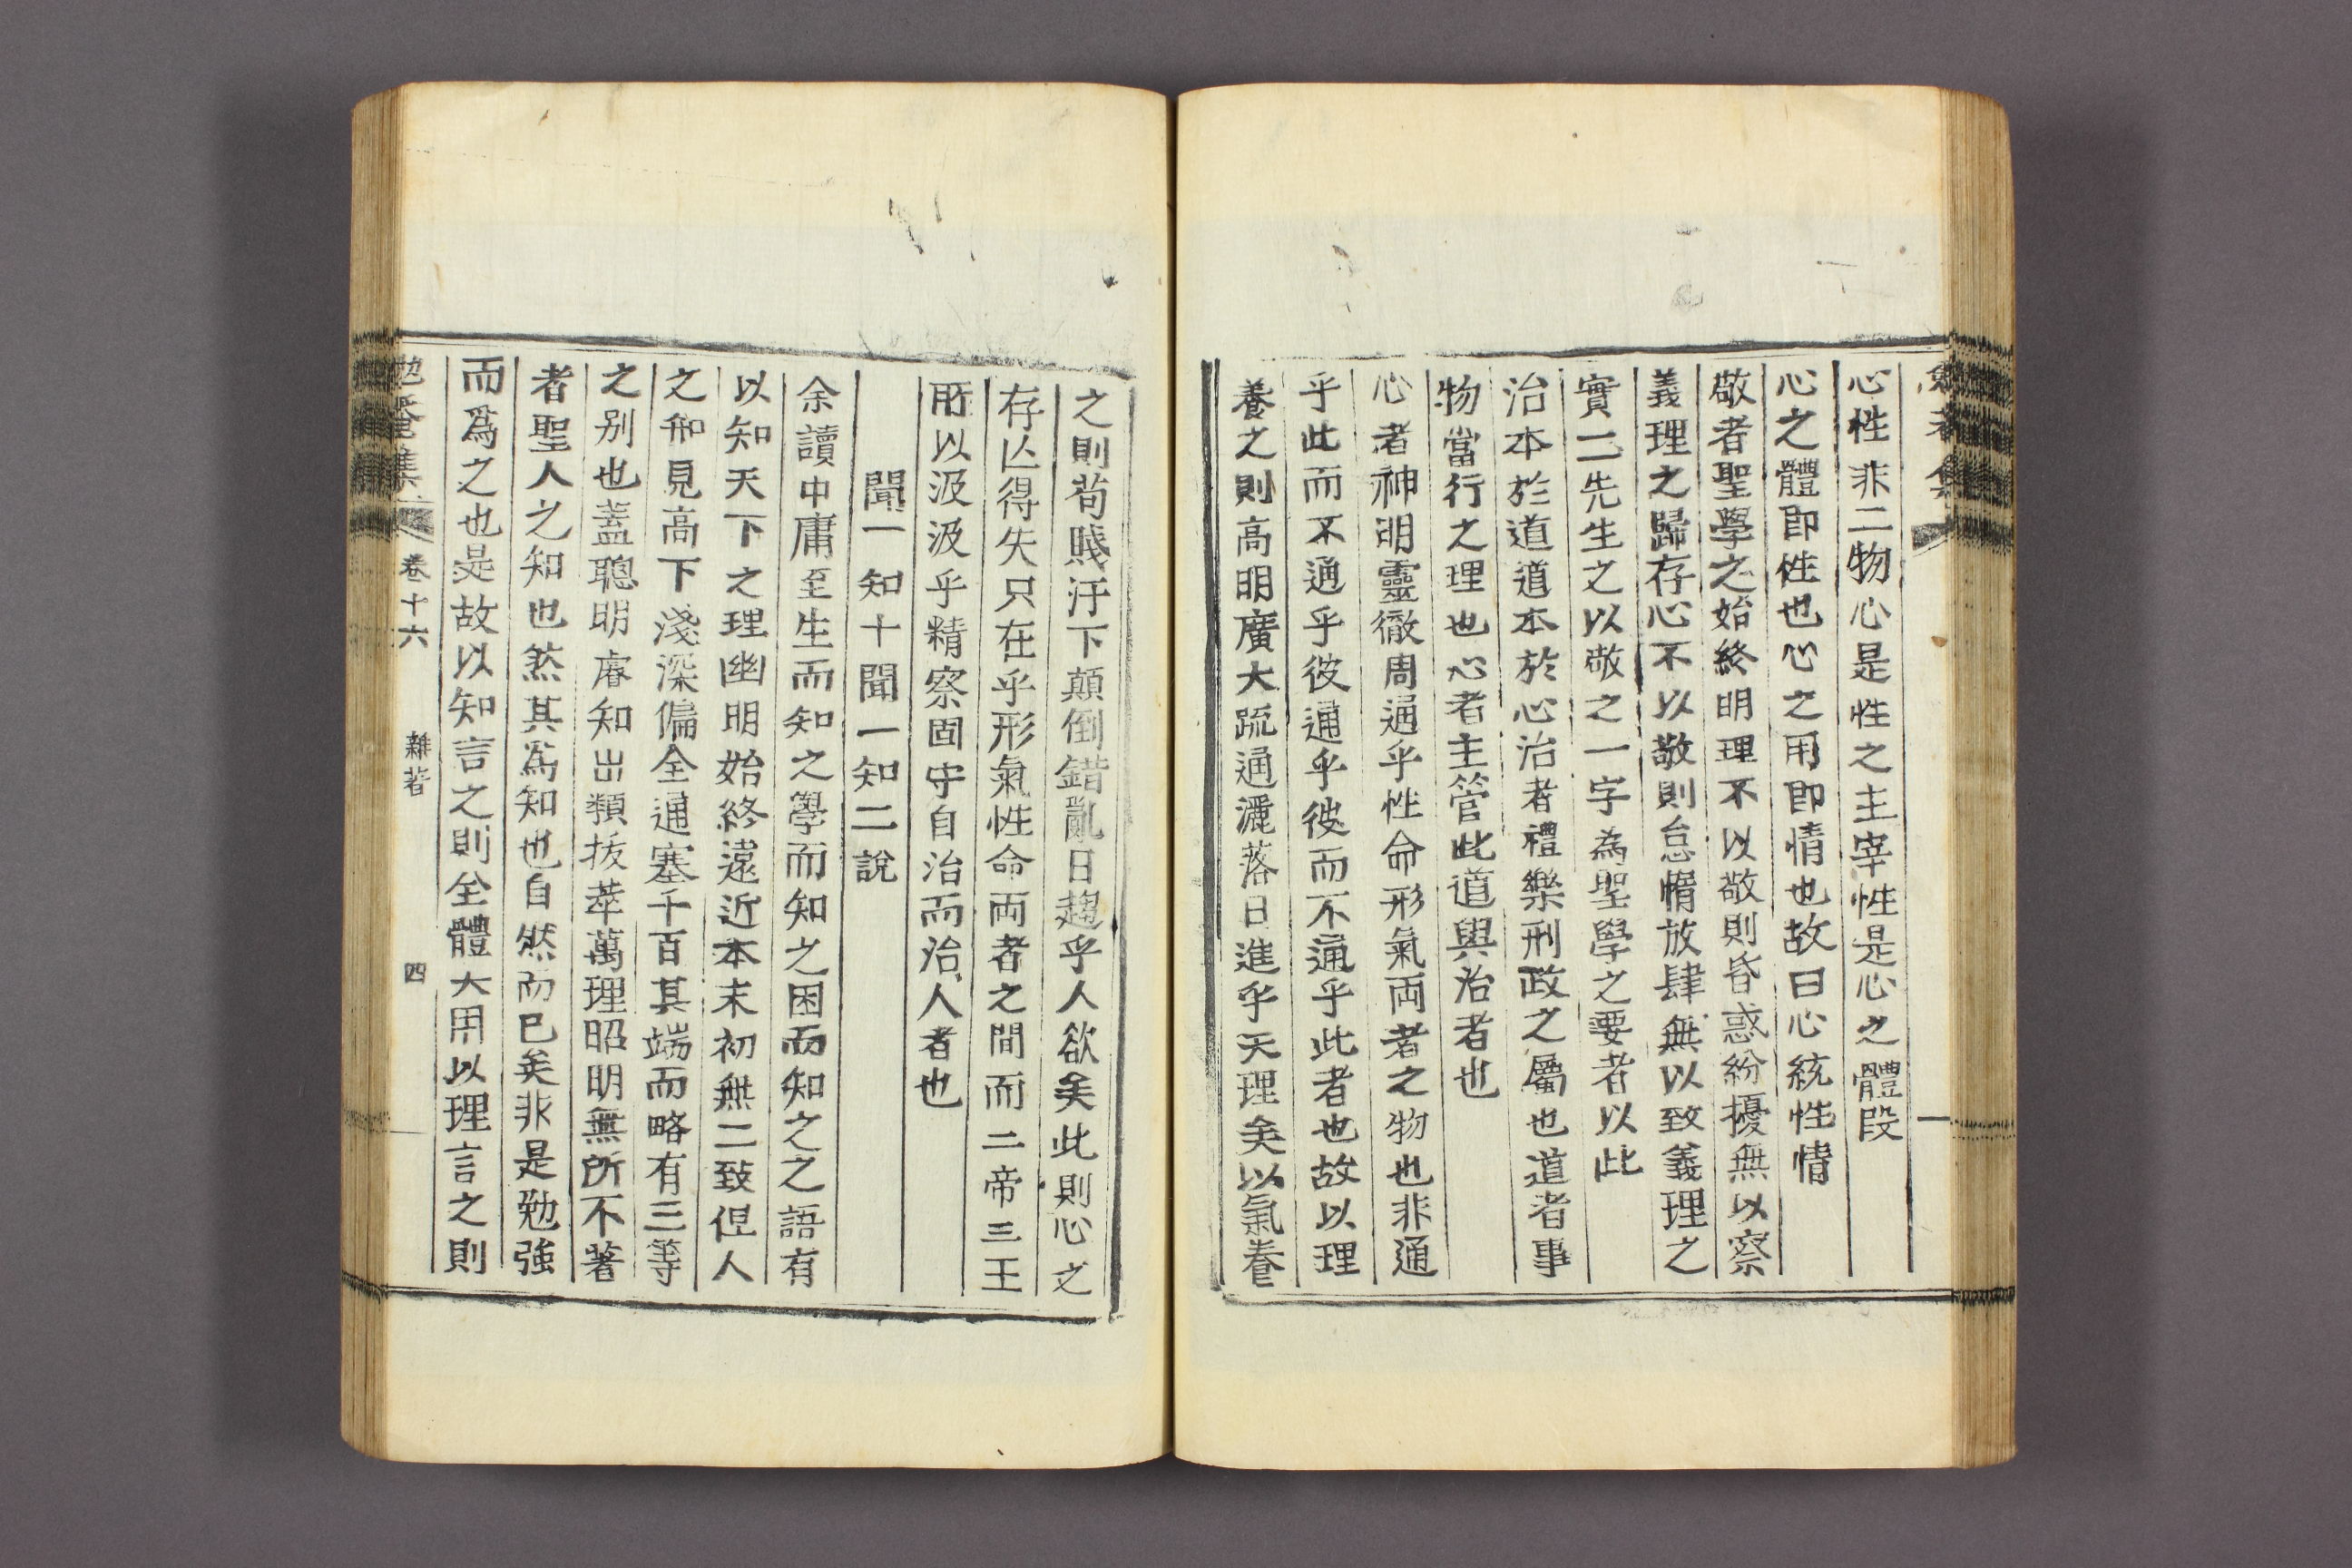 心性非二物心是性之主宰性是心之體段
心之體即性也心之用即情也故曰心統性情
敬者聖學之始終明理不以敬則昏惑紛擾無以察
義理之歸存心不以敬則怠惰放肆無以致義理之
實二先生之以敬之一字為聖學之要者以此
治本於道道本於心治者禮樂刑政之屬也道者事
物當行之理也心者主管此道與治者也
心者神明靈徹周通乎性命形氣両者之物也非通
乎此而不通乎彼通乎彼而不通乎此者也故以理
養之則高明廣大疏通灑落日進乎天理矣以氣養
之則苟賤汙下顛倒錯亂日趨乎人欲矣此則心之
存亾得失只在乎形氣性命両者之間而二帝三王
所以汲汲乎精察固守自治而治人者也
聞一知十聞一知二說
余讀中庸至生而知之學而知之困而知之之語有
以知天下之理幽明始終遠近本末初無二致但人
之知見高下淺深偏全通塞千百其端而略有三等
之别也蓋聰明睿知出類拔萃萬理昭明無所不著
者聖人之知也然其爲知也自然而已矣非是勉強
而爲之也是故以知言之則全體大用以理言之則
勉菴集 卷十六 雜著 四